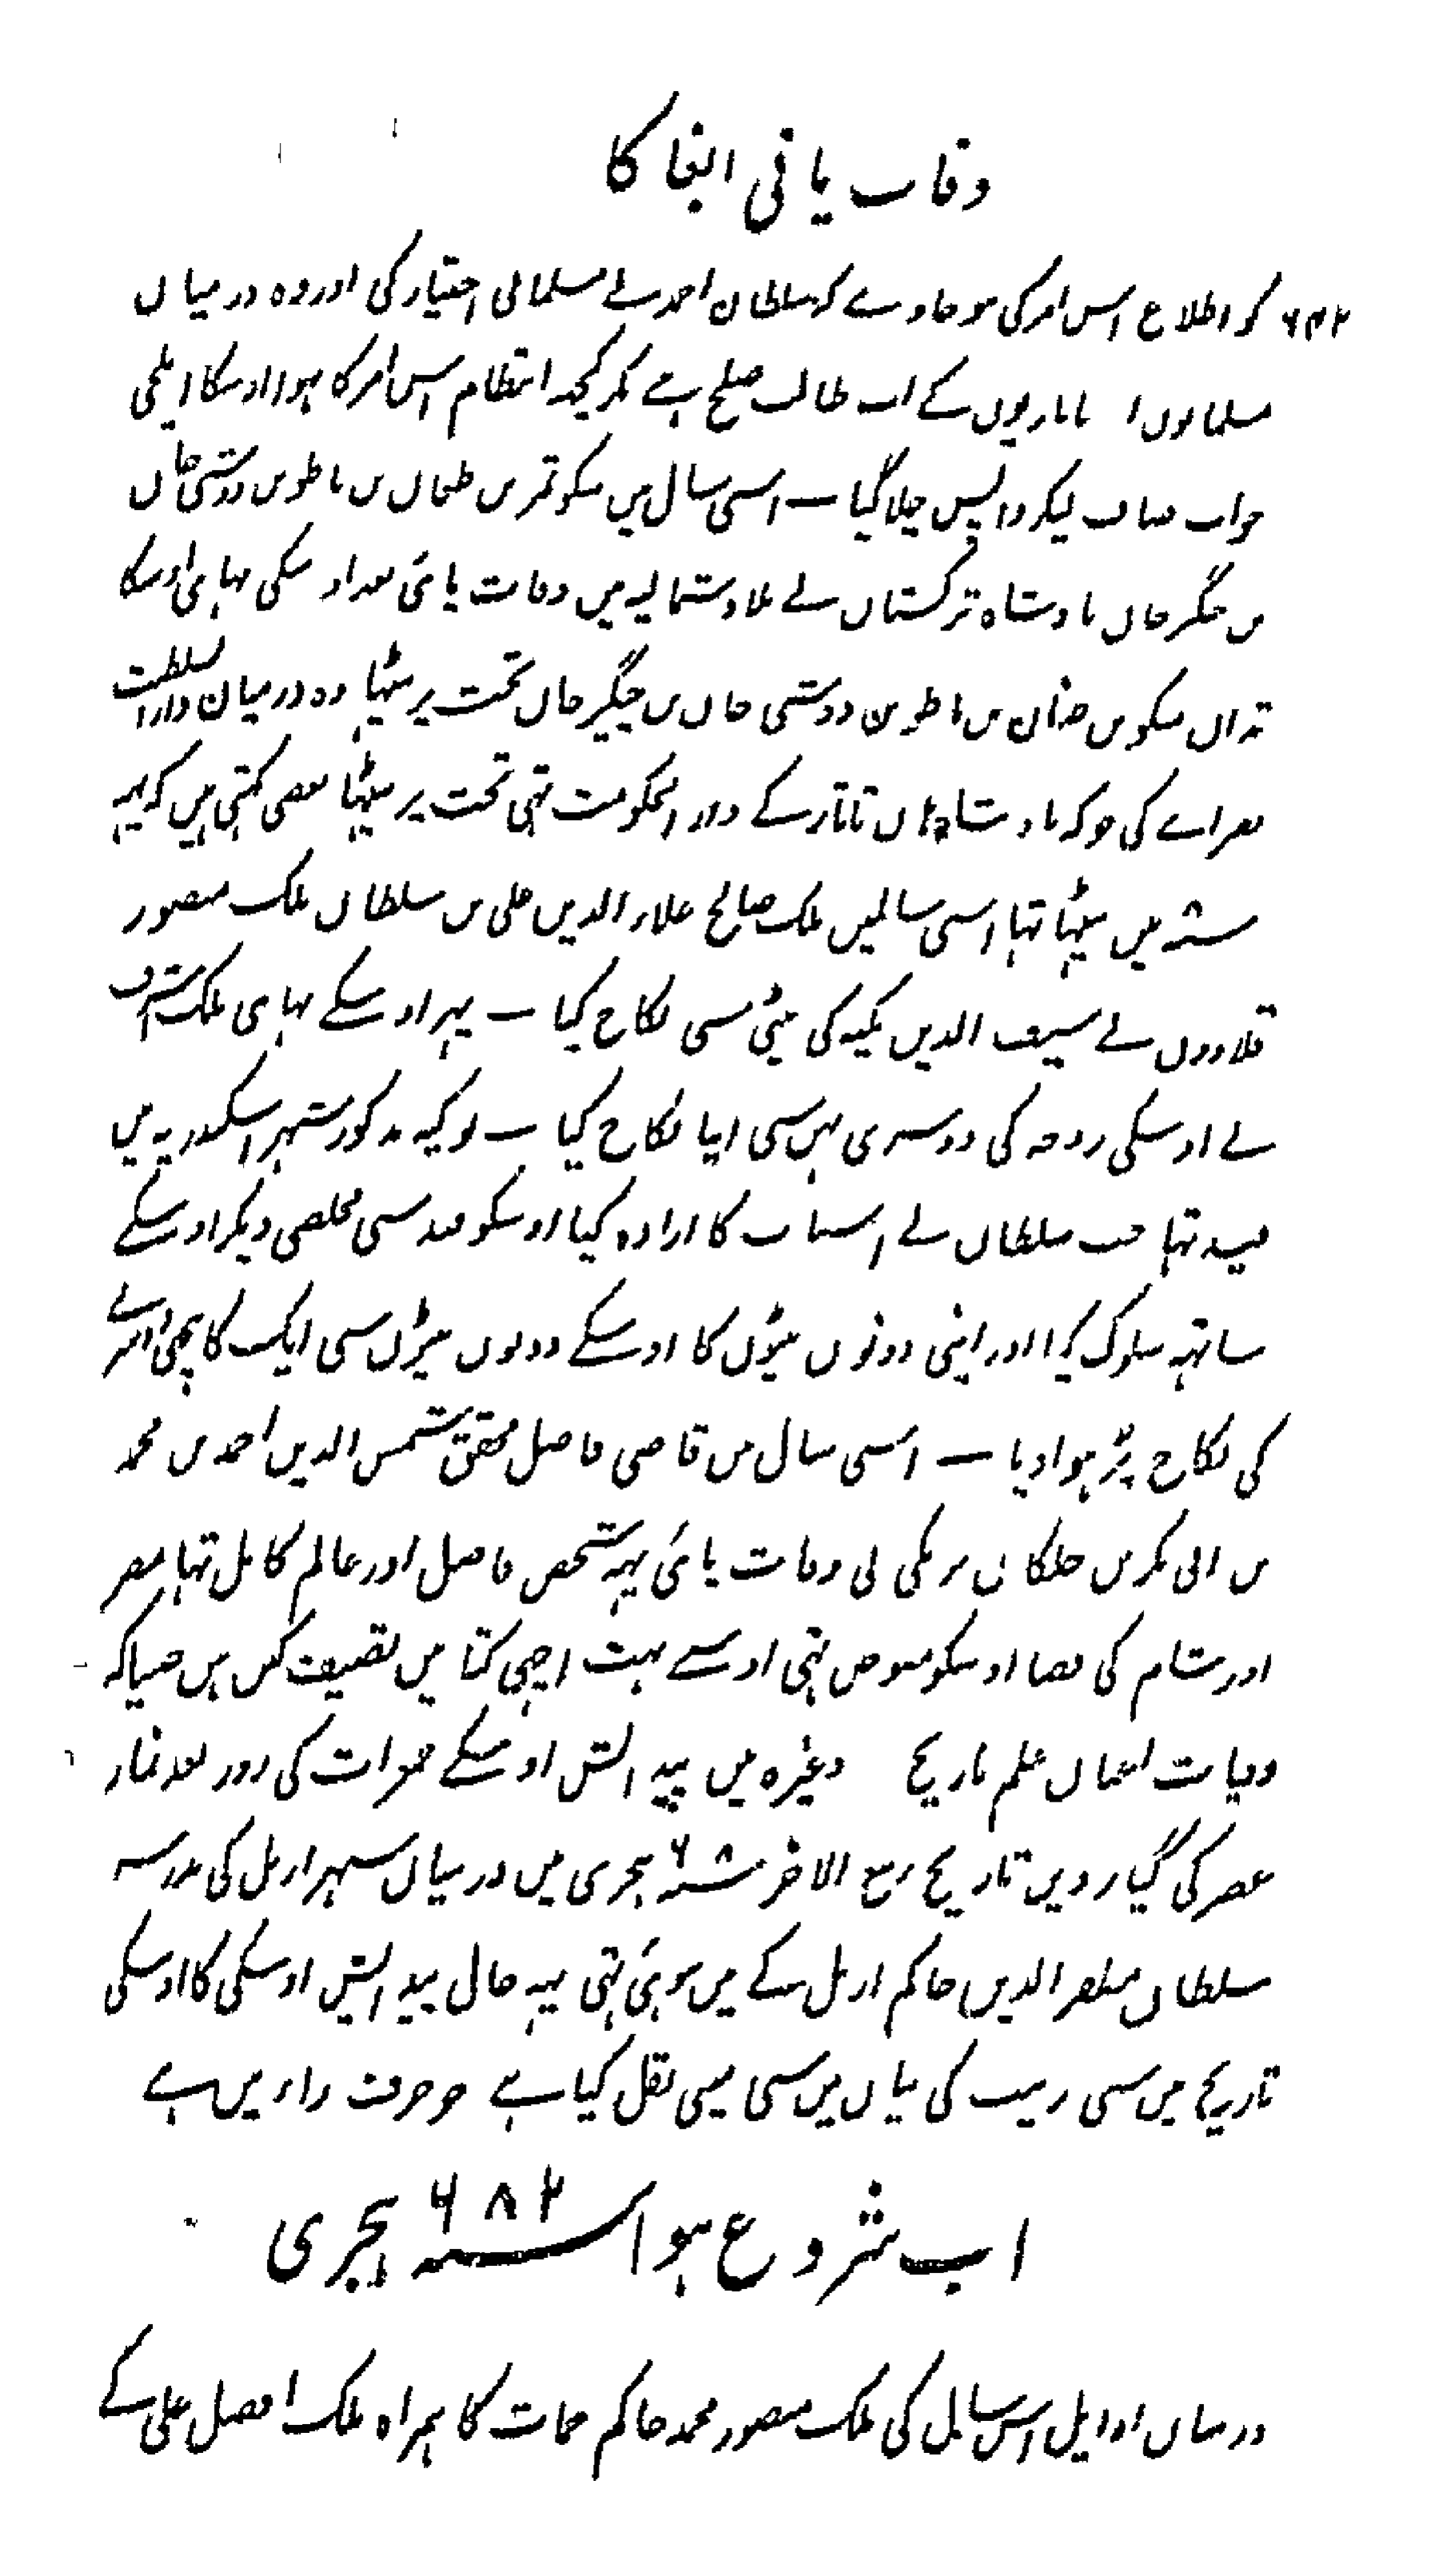 وفات پانی ابغا کا
۶۴۲ کو اطلاع اس امر کی ہو جاوے کہ سلطان احمد نے مسلمانی اختیار کی اور وہ درمیان
مسلمانوں تاتاریوں کے اب طالب صلح ہے مگر کچھ انتظام اس امر کا ہوا اوسکا ایلچی
جواب صاف لیکر واپس چلا گیا — اسی سال میں منکوتمر بن طغان بن باطو بن دوشی خان
بن چنگیز خان بادشاہ ترکستان نے بلاد شمالیہ میں وفات پائی بعد اوسکی بہائی اوسکا
تدان منکو بن طغان بن باطو بن دوشی خان بن چنگیز خان تخت پر بیٹھا وہ درمیان دارالسلطنت
صرای کی جو کہ بادشاہان تاتار کے دار الحکومت تہی تخت پر بیٹھا بعض کہتی ہیں کہ یہہ
سنہ میں بیٹھا تہا اسی سالمیں ملک صالح علاء الدین علی بن سلطان ملک منصور
قلاوون نے سیف الدین نکیہ کی بیٹی سی نکاح کیا — پہر اوسکے بہائی ملک اشرف
نے اوسکی زوجہ کی دوسری بہن سی اپنا نکاح کیا — نوکیہ مذکور شہر اسکندریہ میں
قید تہا جب سلطان نے اسبات کا ارادہ کیا اوسکو قید سی مخلصی دیکر اوسکے
ساتہہ سلوک کیا اور اپنی دونوں بیٹوں کا اوسکے دونوں بیٹیوں سی ایک کا پیچھی دوسرے
کی نکاح پڑہوا دیا — اسی سال میں قاضی فاضل محقق شمس الدین احمد بن محمد
بن ابی بکر بن خلکان برمکی نی وفات پائی یہہ شخص فاضل اور عالم کامل تہا مصر
اور شام کی قضا اوسکو مفوض تہی اوسنے بہت اچھی کتابیں تصنیف کیں ہیں جیسا کہ
وفیات اعیان علم تاریخ وغیرہ میں پیدایش اوسکے جمعرات کی روز بعد نماز
عصر کی گیارویں تاریخ ربیع الاخر سنہ ۶۰۸ ہجری میں درمیان شہر اربل کی مدرسہ
سلطان مظفر الدین حاکم اربل کے میں ہوئی تہی یہہ حال پیدایش اوسکی کا اوسکی
تاریخ میں سی زینب کی بیان میں سی مینی نقل کیا ہے جو حرف زاء میں ہے
اب شروع ہوا سنہ ۶۸۲ ہجری
درمیان اوایل اس سال کی ملک منصور محمد حاکم حمات کا ہمراہ ملک افضل علی کے